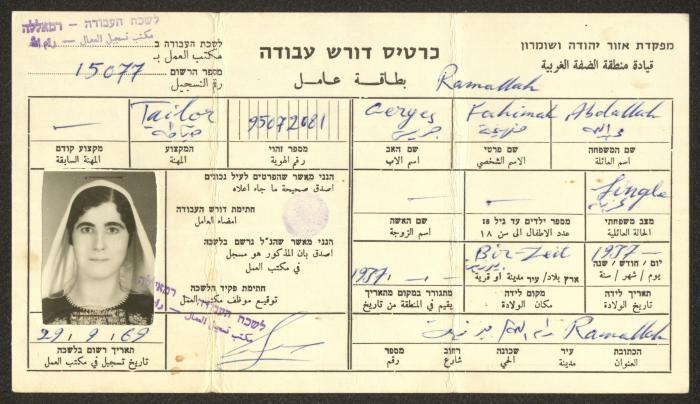 מפקדת אזור יהודה ושומרון
قيادة منطقة الضفة الغربية
כרטיס דורש עבודה
بطاقة عامل
Ramallah
לשכת העבודה - רמאללה
مكتب تسجيل العمال - رام الله
לשכת העבודה ב
مكتب العمل بـ
מספר הרשום
رقم التسجيل
15077
Abdallah
שם המשפחה
اسم العائلة
Fahimah
שם פרטי
الاسم الشخصي
Gerges
שם האב
اسم الاب
95072081
מספר זהוי
رقم الهوية
Tailor
המקצוע
المهنة
מקצוע קודם
المهنة السابقة
Single
מצב משפחתי
الحالة العائلية
מספר ילדים עד גיל 18
عدد الاطفال الى سن ١٨
שם האשה
اسم الزوجة
הנני מאשר שהפרטים לעיל נכונים
اصدق صحيحة ما جاء اعلاه
חתימת דורש העבודה
امضاء العامل
1937
יום / חודש / שנה
يوم / شهر / سنة
תאריך לידה
تاريخ الولادة
Bir-Zeit
ארץ
מקום לידה
مكان الولادة
1937
מתגורר במקום מתאריך
يقيم في المنطقة من تاريخ
הנני מאשר שהנ״ל נרשם בלשכה
اصدق بان المذكور هو مسجل
في مكتب العمل
חתימת פקיד הלשכה
توقيع موظف مكتب العمل
לשכת העבודה - רמאללה
مكتب تسجيل العمال - رام الله
Ramallah
הכתובת
العنوان
עיר
مدينة
שכונה
الحي
רחוב
شارع
מספר
رقم
29.9.69
תאריך רשום בלשכה
تاريخ تسجيل في مكتب العمل